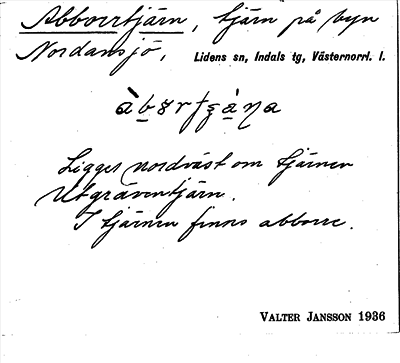 Abborrtjärn, tjärn på byn
Nordansjö, Lidens sn, Indals tg, Västernorrl. l.
Ligger nordväst om tjärnen
Utgräventjärn.
I tjärnen finns abborre.
VALTER JANSSON 1936